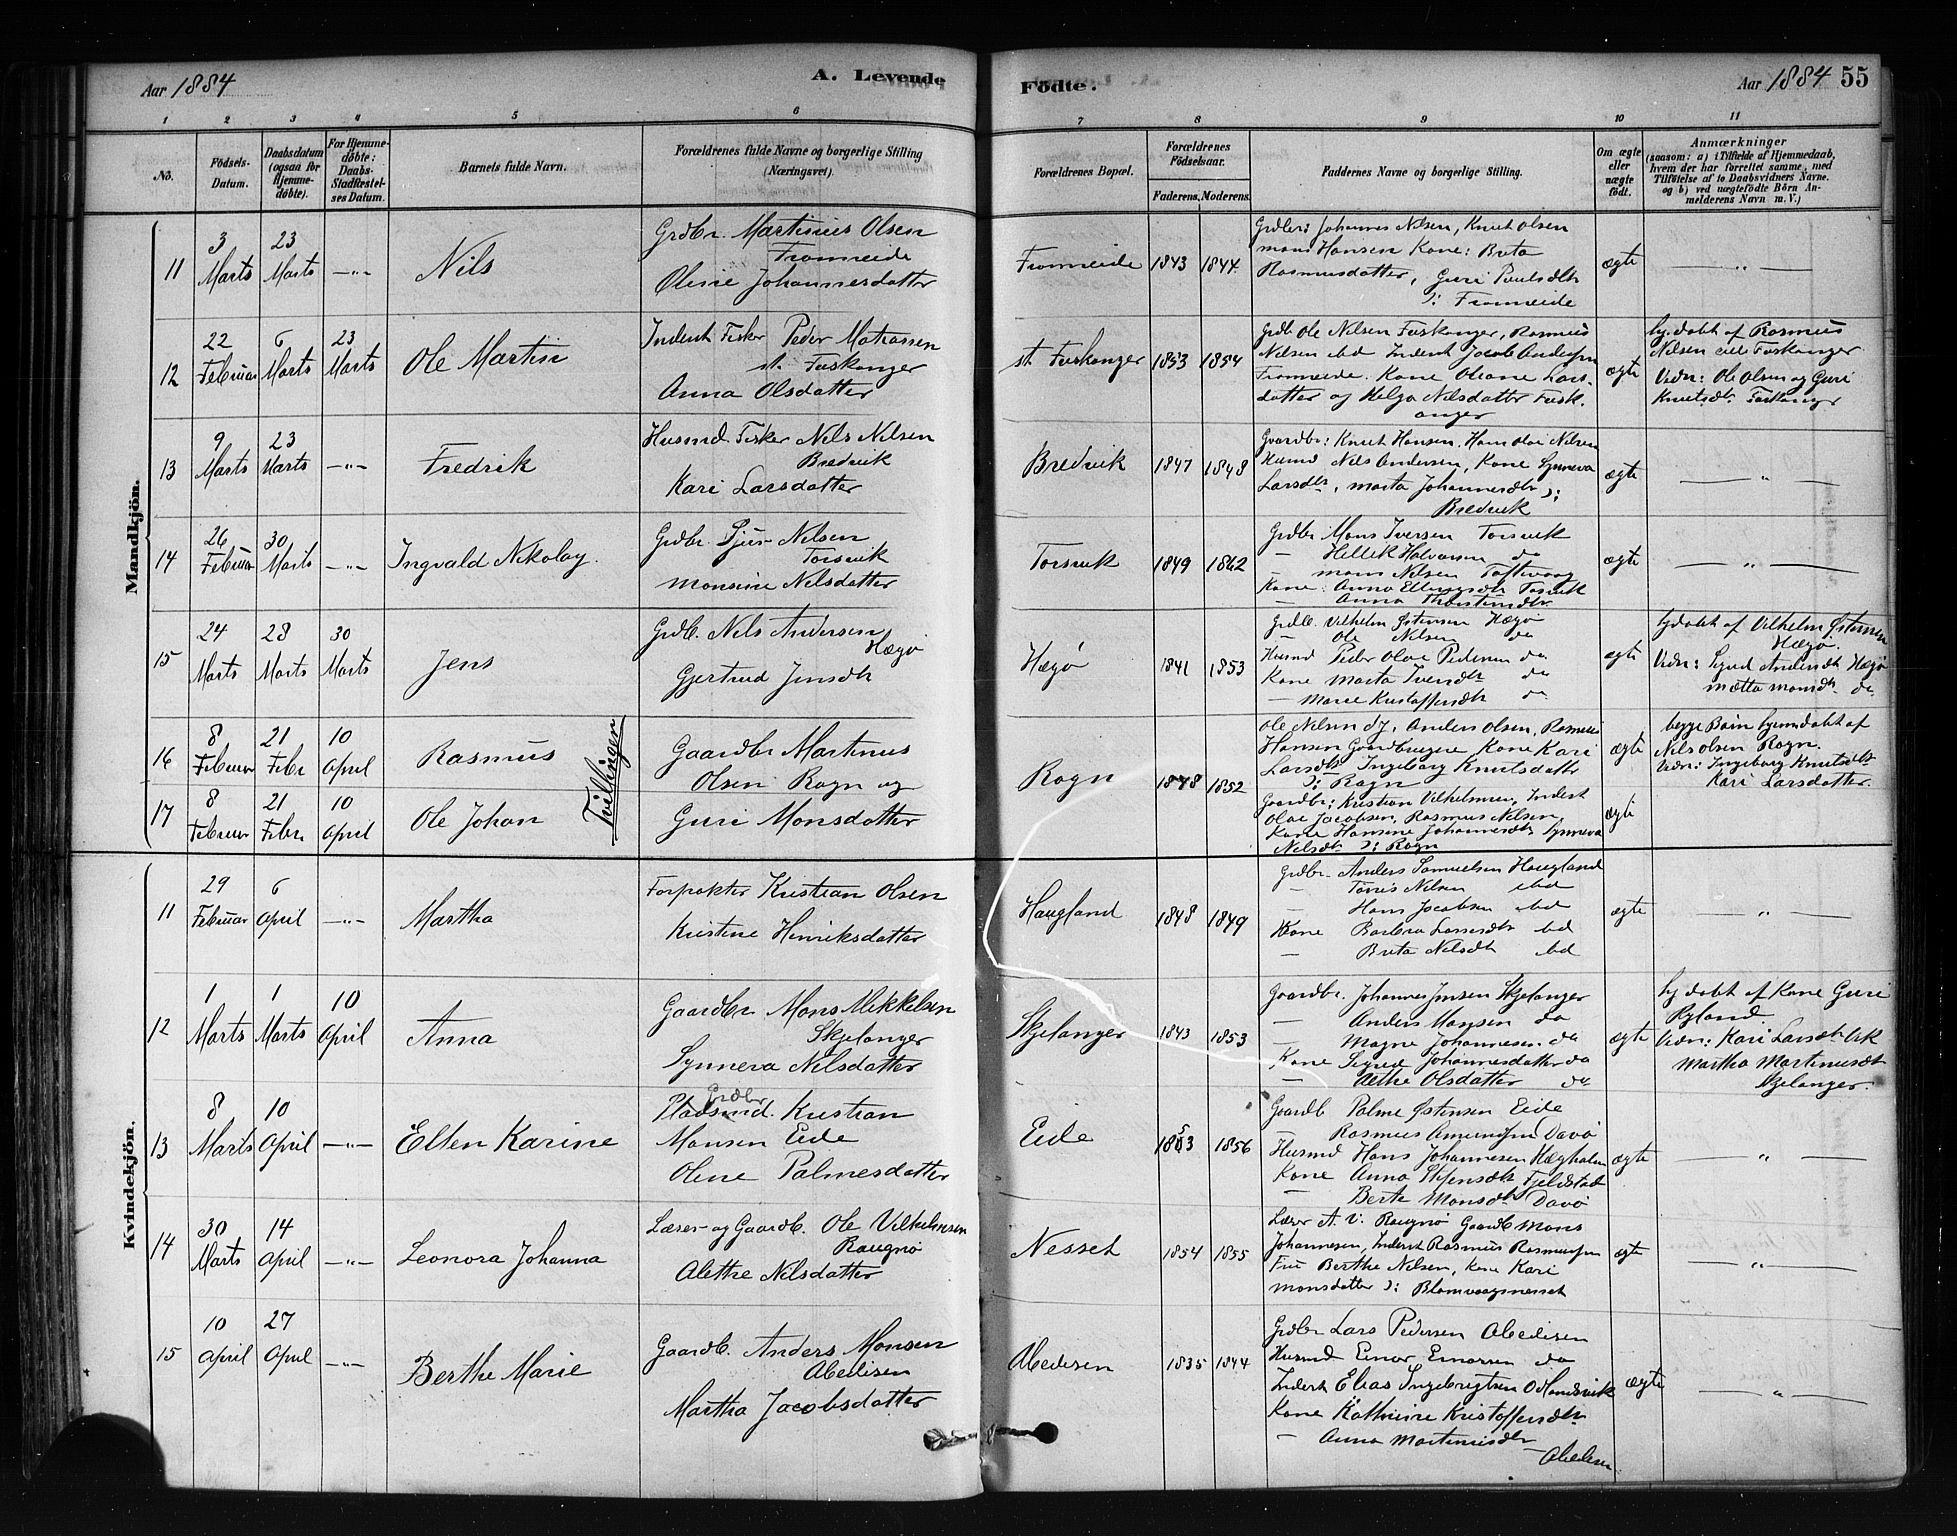 Aar 1884
A. Levende
Födte.
Aar 1884 55
1 2 3 4 5 6 7 8 9 10 11
No.
Födsels-
Datum.
Daabsdatum
(ogsaa for
Hjemme-
döbte).
For Hjemme-
döbte:
Daabs-
Stadfæstel-
ses Datum.
Barnets fulde Navn.
Forældrenes fulde Navne og borgerlige Stilling
(Næringsvei).
Forældrenes Bopæl.
Forældrenes
Födselsaar.
Faderens. Moderens.
Faddernes Navne og borgerlige Stilling.
Om ægte
eller
uægte
født.
Anmærkninger
(saasom: a) i Tilfælde af Hjemmedaab,
hvem der har forrettet samme, med
Tilföielse af to Daabsvidners Navne,
og b) ved uægtefödte Börn An-
melderens Navn m. V.)
Mandkjön.
11
3
Marts
23
Marts
—"—
Nils
Grdbr. Martinus Olsen
Fromreide
Oline Johannesdatter
Fromreide
1843
1844
Grdbr: Johannes Nilsen, Knut Olsen
Mons Hansen Kone: Brita
Rasmusdatter, Guri Paulsdtr
): Fromreide
ægte
— " —
12
22
Februar
6
Marts
23
Marts
Ole Martin
Inderst Fisker Peder Mathiassen
st. Fuskanger
Anna Olsdatter
st. Fuskanger
1853
1854
Grdb Ole Nilsen Fuskanger, Rasmus
Nilsen ibd Inderst Jacob Andersen
Fromreide. Kone Oliane Lars-
datter og Helga Nilsdatter Fusk-
anger
ægte
hj. döbt af Rasmus
Nilsen Fuskanger
Vidn: Ole Olsen og Guri
Knutsdtr Fuskanger
13
9
Marts
23
Marts
—"—
Fredrik
Husmd Fisker Nils Nilsen
Bredvik
Kari Larsdatter
Bredvik
1847
1848
Gaardbr: Knut Hansen, Hans Olai Nilsen
Husmd Nils Andersen, Kone Synneva
Larsdtr, Marta Johannesdtr ):
Bredvik
ægte
— " —
14
26
Februar
30
Marts
—"—
Ingvald Nikolay.
Grdbr. Sjur Nilsen
Torsvik
Monsine Nilsdatter
Torsvik
1849
1862
Grdbr Mons Iversen Torsvik
— Hellik Halvorsen do
— Mons Nilsen Toftevaag
Kone: Anna Ellingsdtr Torsvik
— Anna Thorstensdtr
ægte
— " —
15
24
Marts
28
Marts
30
Marts
Jens
Grdb. Nils Andersen
Hægø
Gjertrud Jensdtr
Hægø
1841
1853
Grdb. Vilhelm Østensen Hægø
— Ole Nilsen do
Husmd Peder Olai Pedersen do
Kone Marta Iversdtr do
— Marie Kristoffersdtr do
ægte
hj döbt af Vilhelm Østensen
Hægø.
Vidn: Sigrid Andersdtr Hægø
Mætta Monsdtr do
16
8
Februar
21
Febr
10
April
Rasmus
Tvillinger
Gaardbr Martinus
Olsen Rogn og
Guri Monsdatter
Rogn
1848
1852
Ole Nilsen dj, Anders Olsen, Rasmus
Hansen Gaardbrugere Kone Kari
Larsdtr Ingeborg Knutsdatter
): Rogn
ægte
begge Börn hjemdöbt af
Nils Olsen Rogn.
Vidn: Ingeborg Knutsdtr
Kari Larsdatter.
17
8
Februar
21
Febr
10
April
Ole Johan
Gaardbr: Kristian Vilhelmsen, Inderst
Olai Jacobsen, Rasmus Nilsen,
Kone Hansine Johannesdtr Synneva
Nilsdtr ): Rogn
ægte
Kvindekjön.
11
29
Februar
6
April
—"—
Martha
Forpakter Kristian Olsen
Kristine Henriksdatter
Haugland
1848
1849
Grdbr. Anders Samuelsen Haugland
— Tørris Nilsen ibd
— Hans Jacobsen ibd
Kone Barbra Larsdtr ibd
— Brita Nilsdtr ibd
ægte
— " —
12
1
Marts
1
Marts
10
April
Anna
Gaardbr Mons Mikkelsen
Skjelanger
Synneva Nilsdatter
Skjelanger
1843
1853
Gaardbr. Johannes Jensen Skjelanger
— Anders Hansen do
— Magne Johannesen do
Kone Sigrid Johannesdatter do
— Alethe Olsdatter do
ægte
hj döbt af Kone Guri
Ryland
Vidn: Kari Larsdtr
Martha Martinusdtr
Skjelanger.
13
8
Marts
10
April
—"—
Ellen Karine
Grdbr
Pladsmd. Kristian
Monsen Eide
Oline Palmesdatter
Eide
1853
1856
Gaardb Palme Østensen Eide
— Rasmus Amundsen Davø
Husmd Hans Johannesen Hægholm
Kone Anna Steffensdtr Fjeldstad
— Berte Monsdtr Davø
ægte
— " —
14
30
Marts
14
April
—"—
Leonora Johanna
Lærer og Gaardb. Ole Vilhelmsen
Raugnø
Alethe Nilsdatter
Nesset
1854
1855
Lærer A. V. Raugnø Gaardb Mons
Johannesen, Inderst Rasmus Rasmussen
Fru Berthe Nilsen, Kone Kari
Monsdatter ): Blomvaagsnesset
ægte
— " —
15
10
April
27
April
—"—
Berthe Marie
Gaardb. Anders Monsen
Abedisen
Martha Jacobsdatter
Abedisen
1835
1844
Grdbr Lars Pedersen Abedisen
Husmd Einar Einarsen do
Inderst Elias Ingebrigtsen
Kone Kathrine Kristoffersdtr
— Anna Martinusdtr
— Abedisen
ægte
— " —